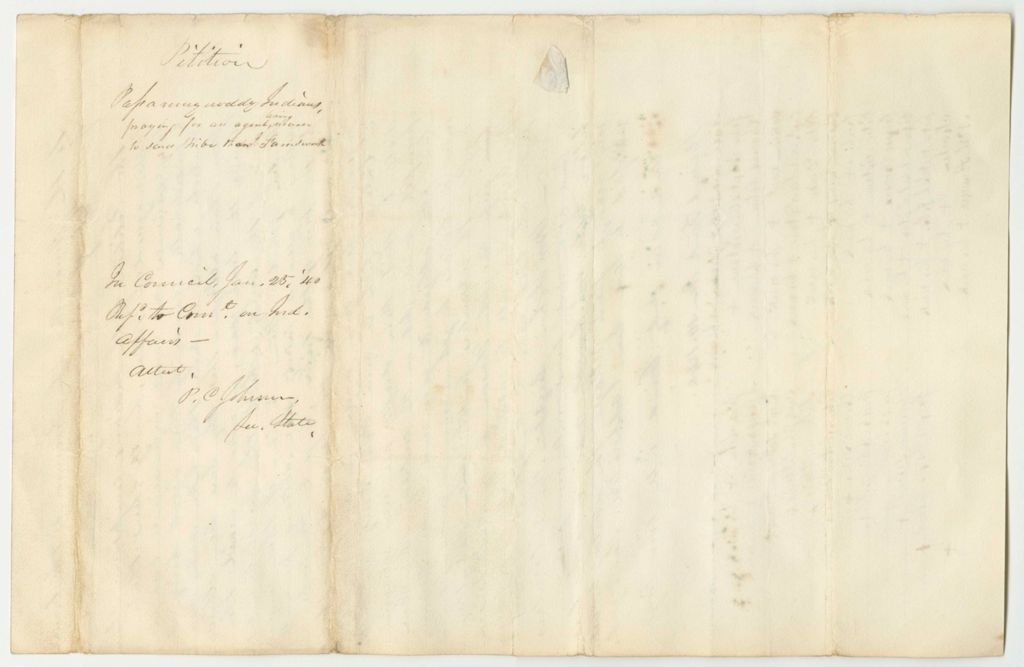 Petition
Passamaquoddy Indians,
praying for an agent among
to said tribe
In Council, Jan. 25, '40
Ref.d to Com.e on Ind.
Affairs —
Attest,
P. C. Johnson,
Sec. State.